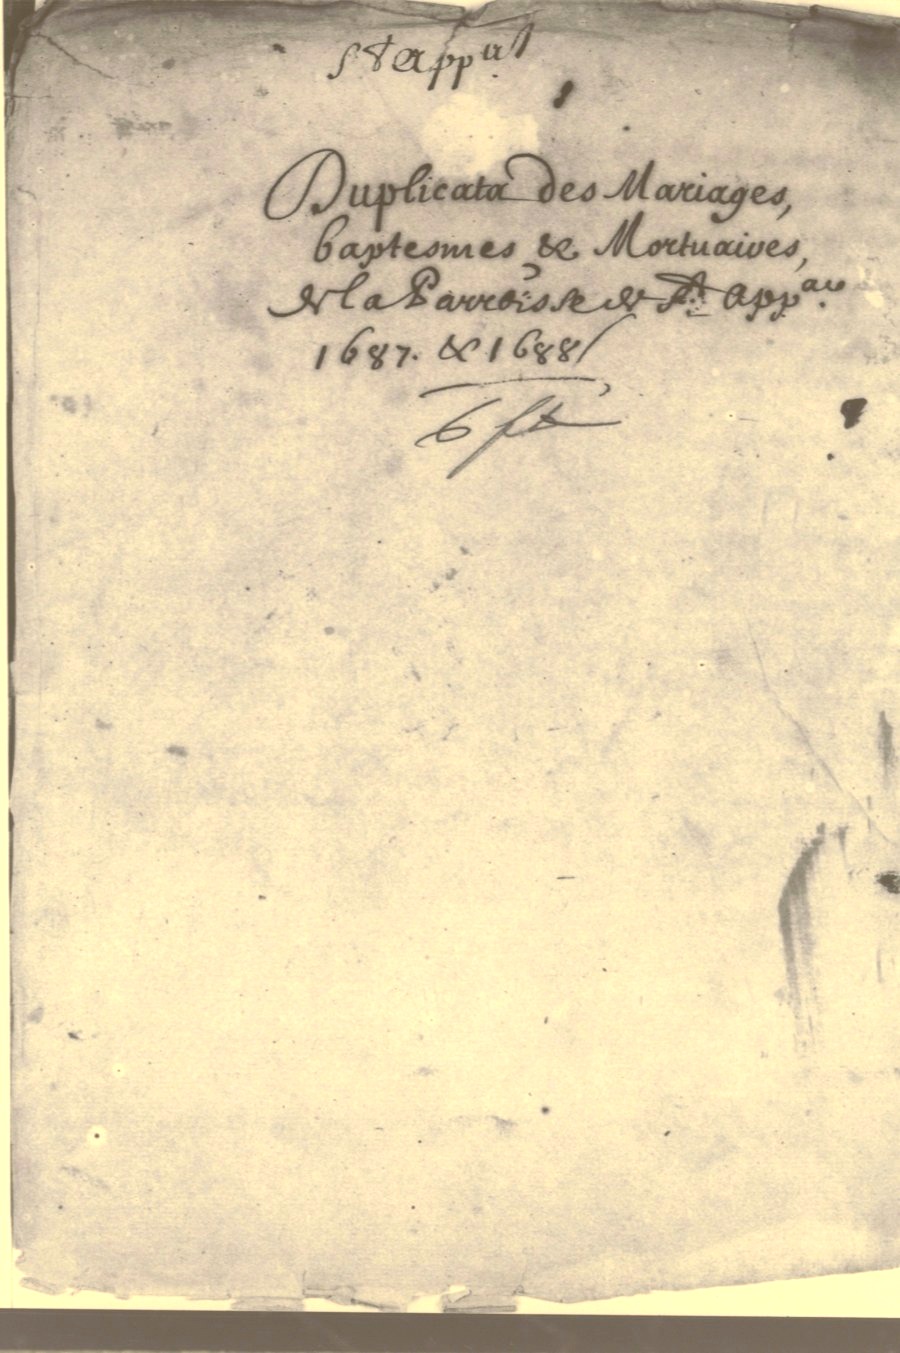 St App
Duplicata des Mariages,
baptesmes & Mortuaires,
de la Parroisse de St App.
1687. & 1688
6 ft